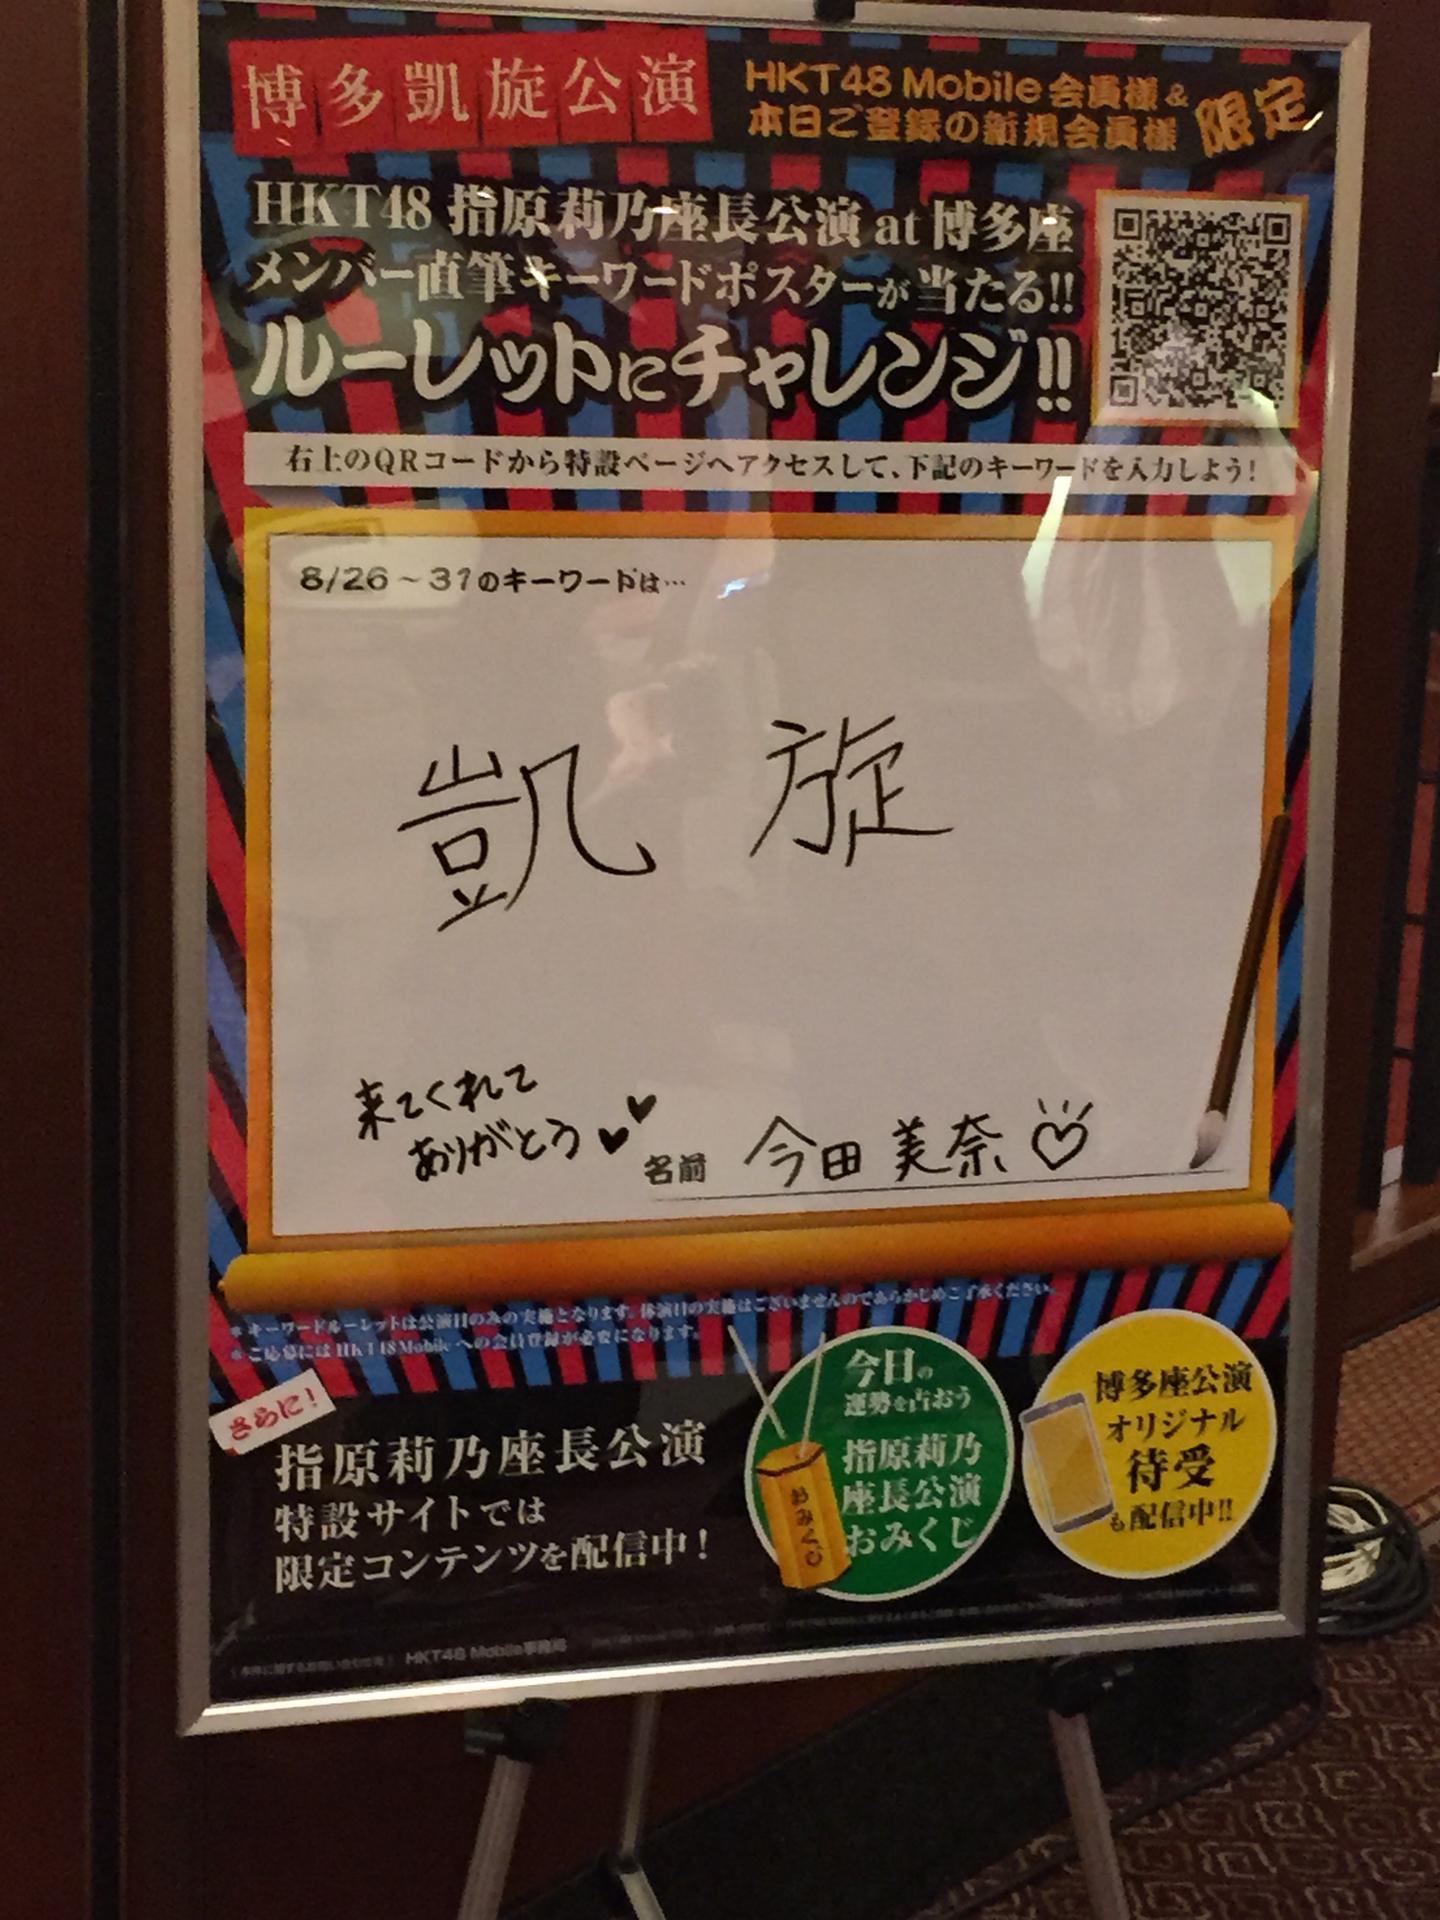 博多凱旋公演
HKT48 Mobile会員様&
本日ご登録の新規会員様
限定
HKT48 指原莉乃座長公演 at 博多座
メンバー直筆キーワードポスターが当たる!!
ルーレットにチャレンジ!!
右上のQRコードから特設ページへアクセスして、下記のキーワードを入力しよう!
8/26~31のキーワードは…
凱旋
来てくれて
ありがとう
名前 今田美奈
*キーワードルーレットは公演日の為の実施となります。休演日の実施はございませんのであらかじめご了承ください。
*ご応募にはHKT48Mobileへの会員登録が必要になります。
さらに!
指原莉乃座長公演
特設サイトでは
限定コンテンツを配信中!
今日の
運勢を占おう
指原莉乃
座長公演
おみくじ
おみくじ
博多座公演
オリジナル
待受
も配信中!!
HKT48 Mobile事務局